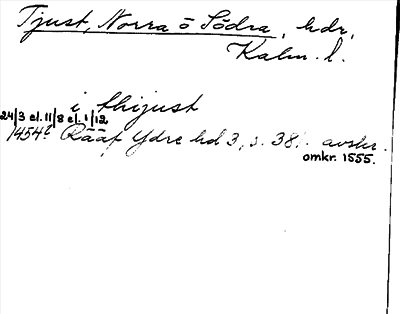 Tjust, Norra o Södra, hdr,
Kalm. l.
i thijust
24/3 el. 11/8 el. 1/12
1454 Rääf Ydre hd 3, s. 381. avskr.
omkr. 1555.